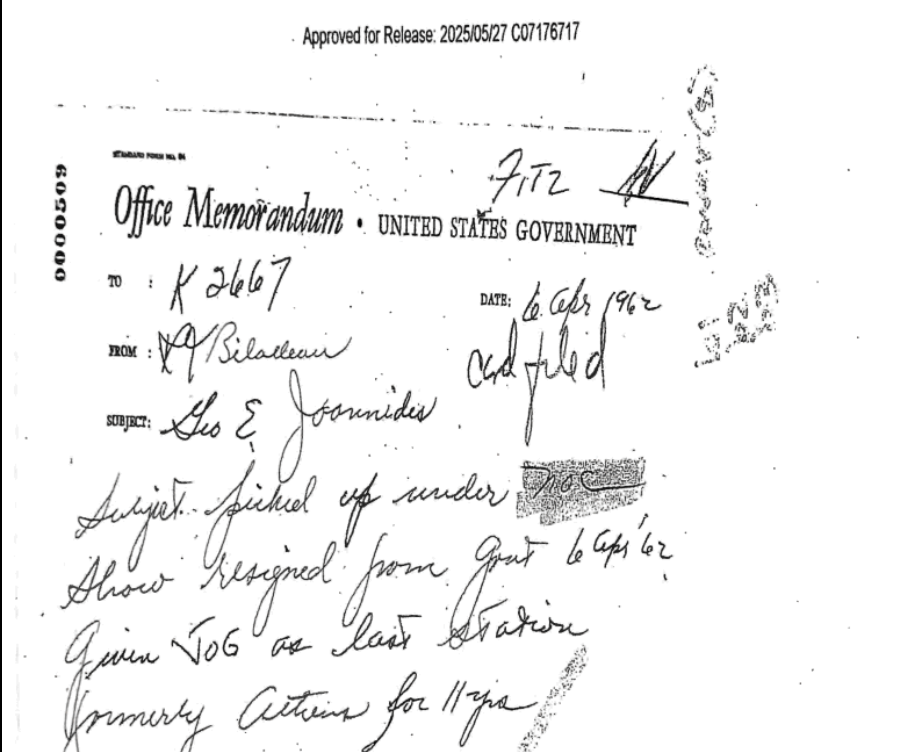 Approved for Release: 2025/05/27 C07176717
0000509
STANDARD FORM NO. 64
FITZ
Office Memorandum • UNITED STATES GOVERNMENT
TO : K 2667
DATE: 6 Apr 1962
FROM : Biladeau
card filed
SUBJECT: Geo E Joannides
Subject picked up under NOC
Show resigned from Govt 6 Apr '62
Given JOG as last station
formerly Athens for 11 yrs